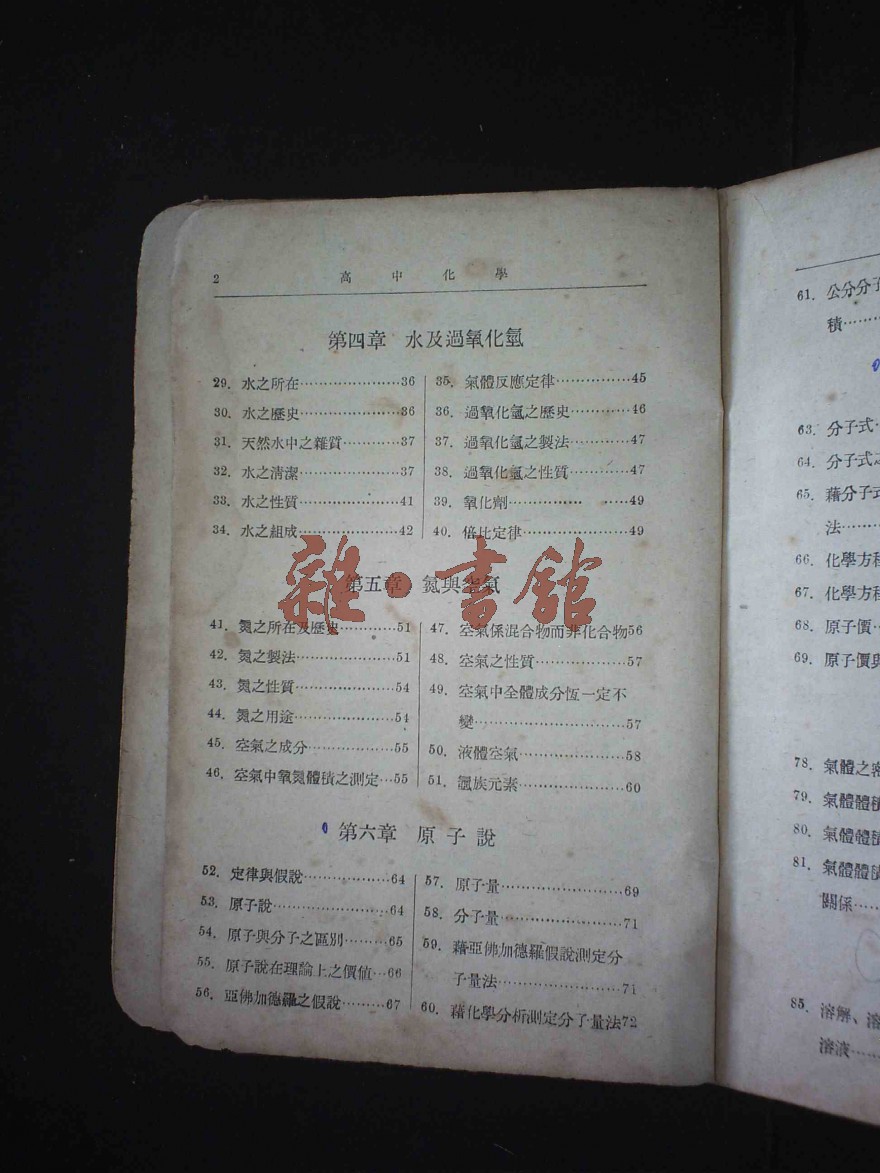 2 高中化學
第四章 水及過氧化氫
29. 水之所在…………………36
30. 水之歷史…………………36
31. 天然水中之雜質…………37
32. 水之清潔…………………37
33. 水之性質…………………41
34. 水之組成…………………42
35. 氣體反應定律……………45
36. 過氧化氫之歷史…………46
37. 過氧化氫之製法…………47
38. 過氧化氫之性質…………47
39. 氧化劑…………… ……49
40. 倍比定律…………………49
第五章 氮與空氣
41. 氮之所在及歷史…………51
42. 氮之製法…………………51
43. 氮之性質…………………54
44. 氮之用途…………………54
45. 空氣之成分………………55
46. 空氣中氧氮體積之測定…55
47. 空氣係混合物而非化合物56
48. 空氣之性質………………57
49. 空氣中全體成分恆一定不
變…………………………57
50. 液體空氣…………………58
51. 氬族元素…………………60
第六章 原子說
52. 定律與假說………………64
53. 原子說……………………64
54. 原子與分子之區別………65
55. 原子說在理論上之價値…66
56. 亞佛加德羅之假說………67
57. 原子量……………………69
58. 分子量……………………71
59. 藉亞佛加德羅假說測定分
子量法……………………71
60. 藉化學分析測定分子量法72
雜·書館
61. 公分分子
積……
63. 分子式
64. 分子式
65. 藉分子式
法……
66. 化學方程
67. 化學方程
68. 原子價
69. 原子價與
78. 氣體之密
79. 氣體體積
80. 氣體體積
81. 氣體體積
關係……
85. 溶解、溶
溶液……